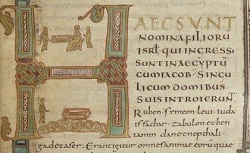 HAEC SUNT
NOMINA FILIORU
ISRL QUI INGRESSI
SUNT IN AEGYPTU
CUM IACOB SINGU
LI CUM DOMIBUS
SUIS INTROIERUNT
Ruben symeon leui iuda
issachar zabulon et ben
iamin dan et nepthali
gad et aser Erant igitur omnes animae eorum quae